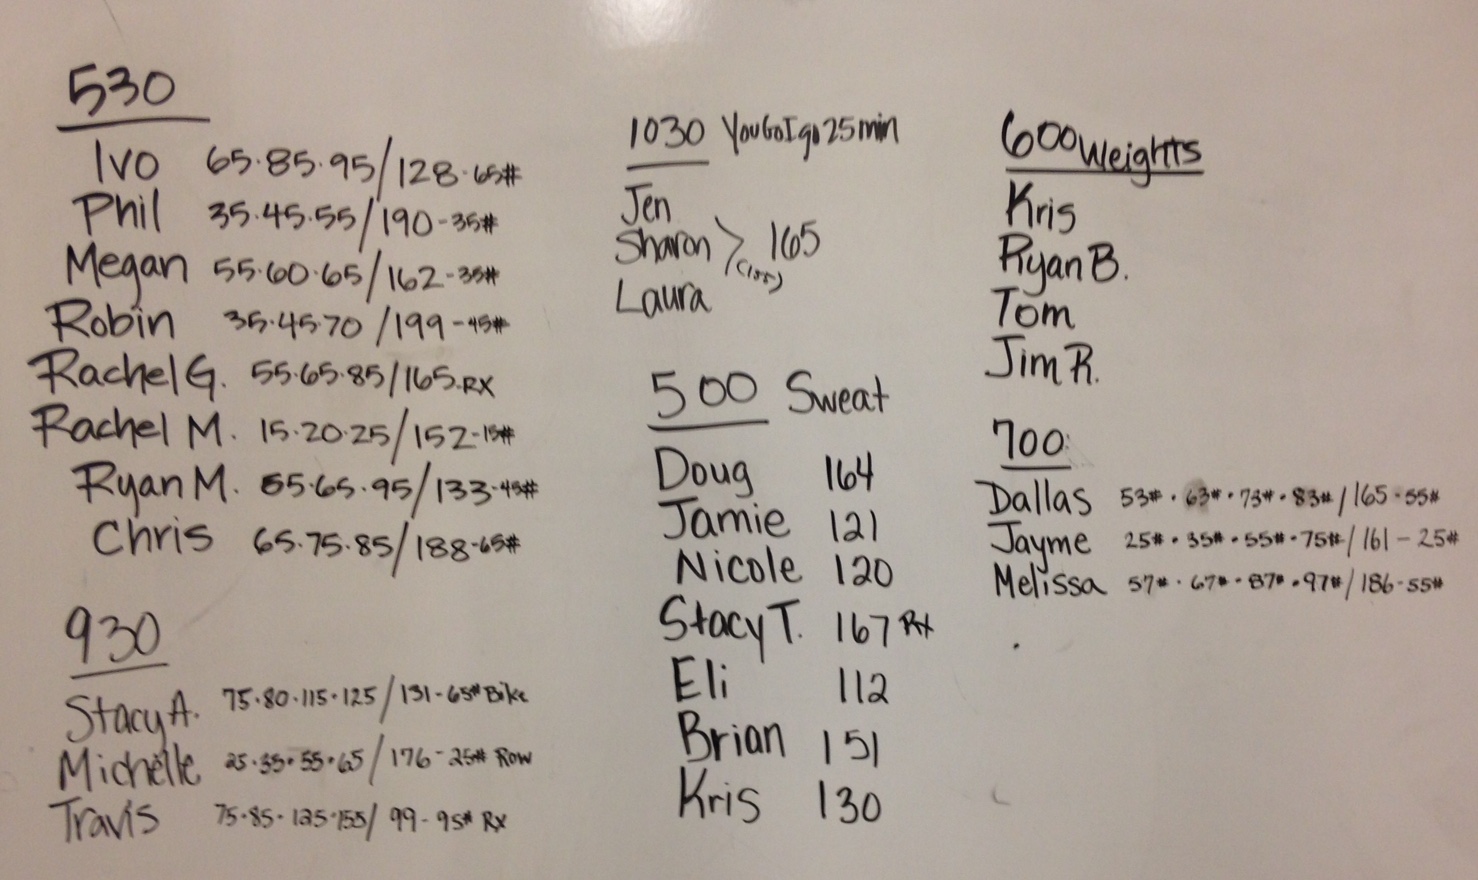 530
Ivo 65·85·95/128·65#
Phil 35·45·55/190-35#
Megan 55·60·65/162-35#
Robin 35·45·70/199-45#
Rachel G. 55·65·85/165·RX
Rachel M. 15·20·25/152-15#
Ryan M. 55·65·95/133-45#
Chris 65·75·85/188-65#
930
Stacy A. 75·80·115·125/131-65# Bike
Michelle 25·35·55·65/176-25# Row
Travis 75·85·125·155/99-95# Rx
1030 YouGoIgo25min
Jen
Sharon > 165
Laura
500 Sweat
Doug 164
Jamie 121
Nicole 120
Stacy T. 167 Rx
Eli 112
Brian 151
Kris 130
600 Weights
Kris
Ryan B.
Tom
Jim R.
700:
Dallas 53#·63#·73#·83#/165·55#
Jayme 25#·35#·55#·75#/161-25#
Melissa 57#·67#·87#·97#/186-55#